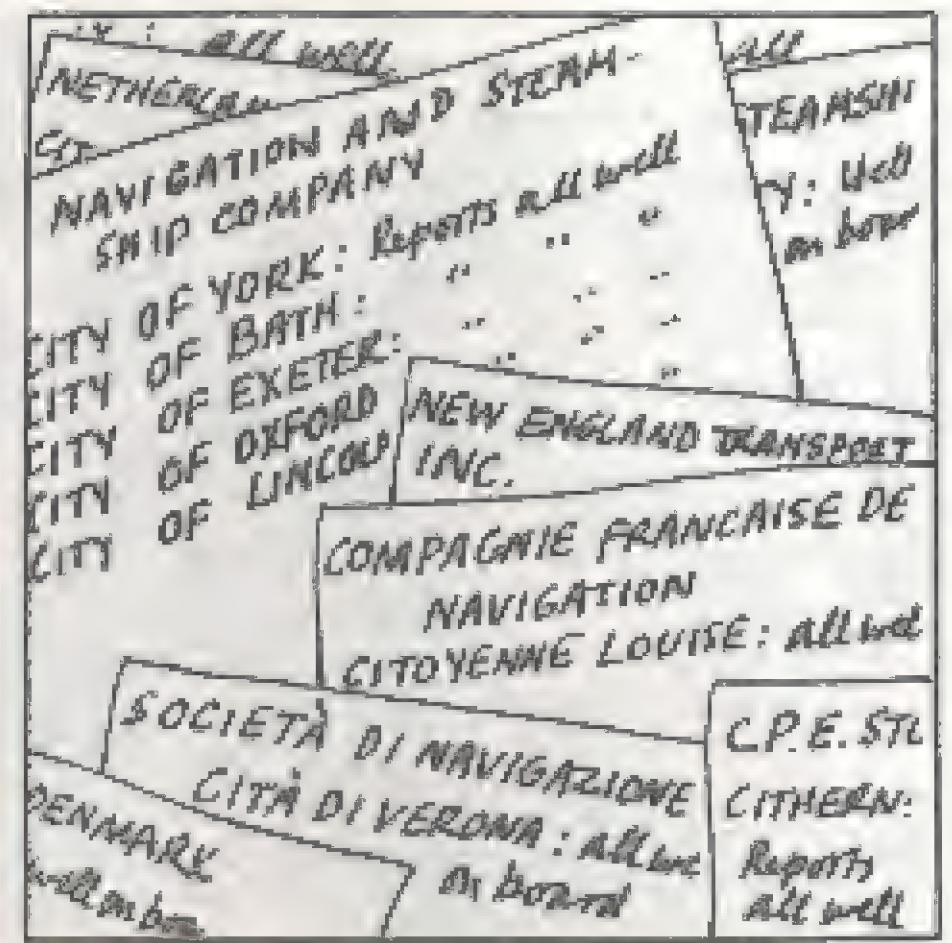 all well
NETHERLAN
Co.
NAVIGATION AND STEAM-
SHIP COMPANY
CITY OF YORK: Reports all well
CITY OF BATH: " " "
CITY OF EXETER: " " "
CITY OF OXFORD " " "
CITY OF LINCOLN
All
TEAMSHI
Y: Well
on boar
NEW ENGLAND TRANSPORT
INC.
COMPAGNIE FRANCAISE DE
NAVIGATION
CITOYENNE LOUISE: All wel
SOCIETÀ DI NAVIGAZIONE
CITÀ DI VERONA: All we
on board
C.P.E. STE
CITHERN:
Reports
all well
DENMARK
well on bo